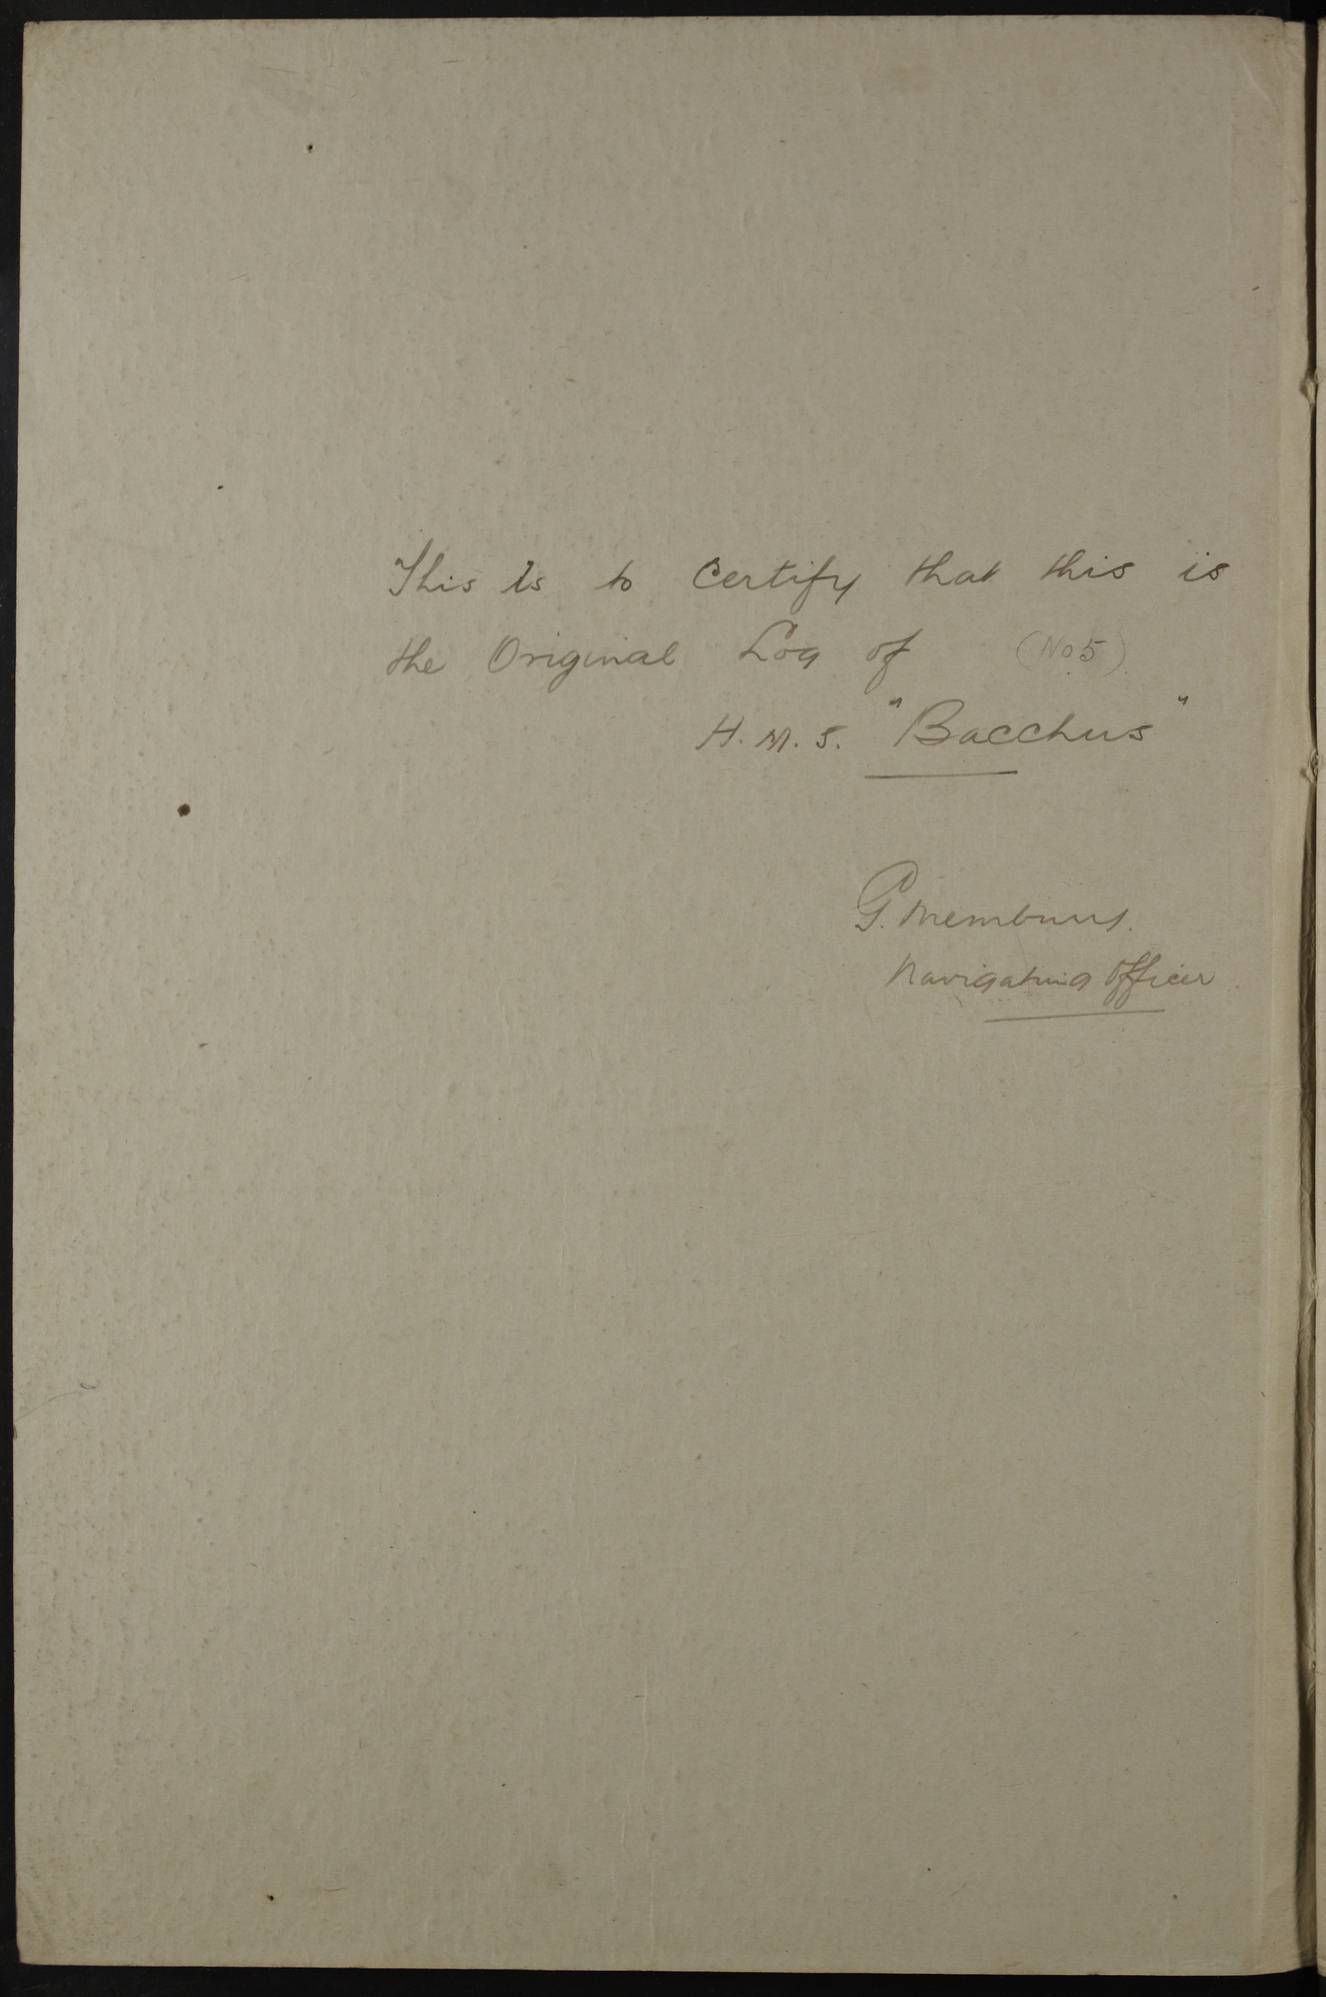 This is to Certify that this is
the Original Log of (No 5)
H.M.S. "Bacchus"
G.
Navigating Officer